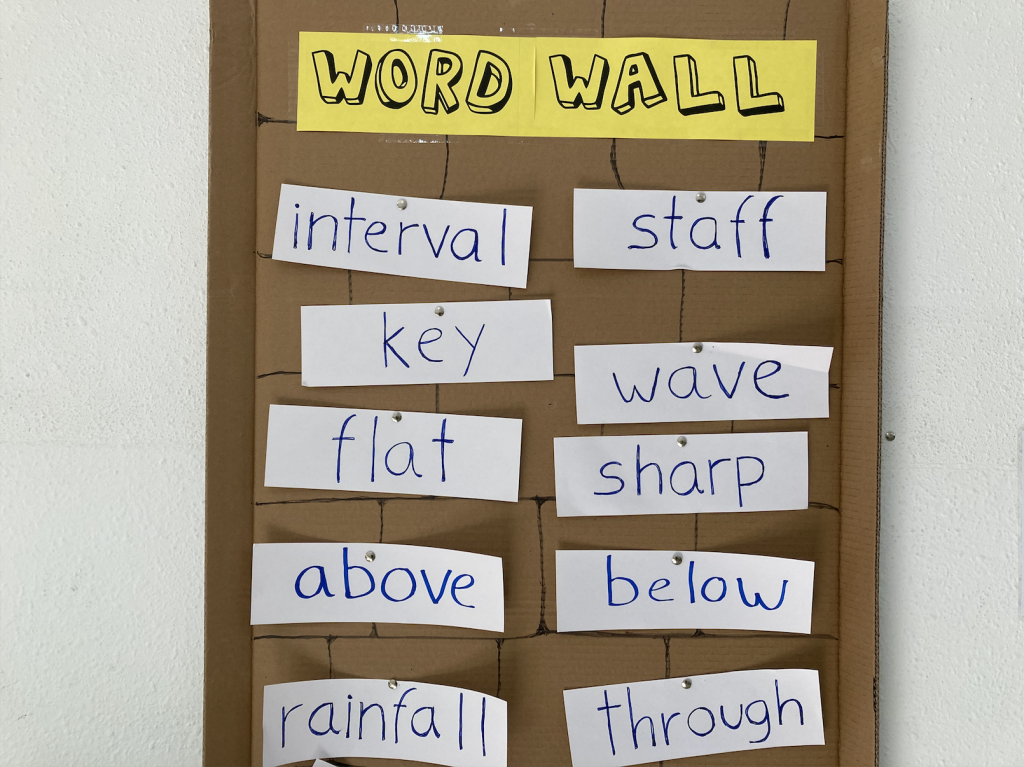 WORD WALL
interval
staff
key
wave
flat
sharp
above
below
rainfall
through